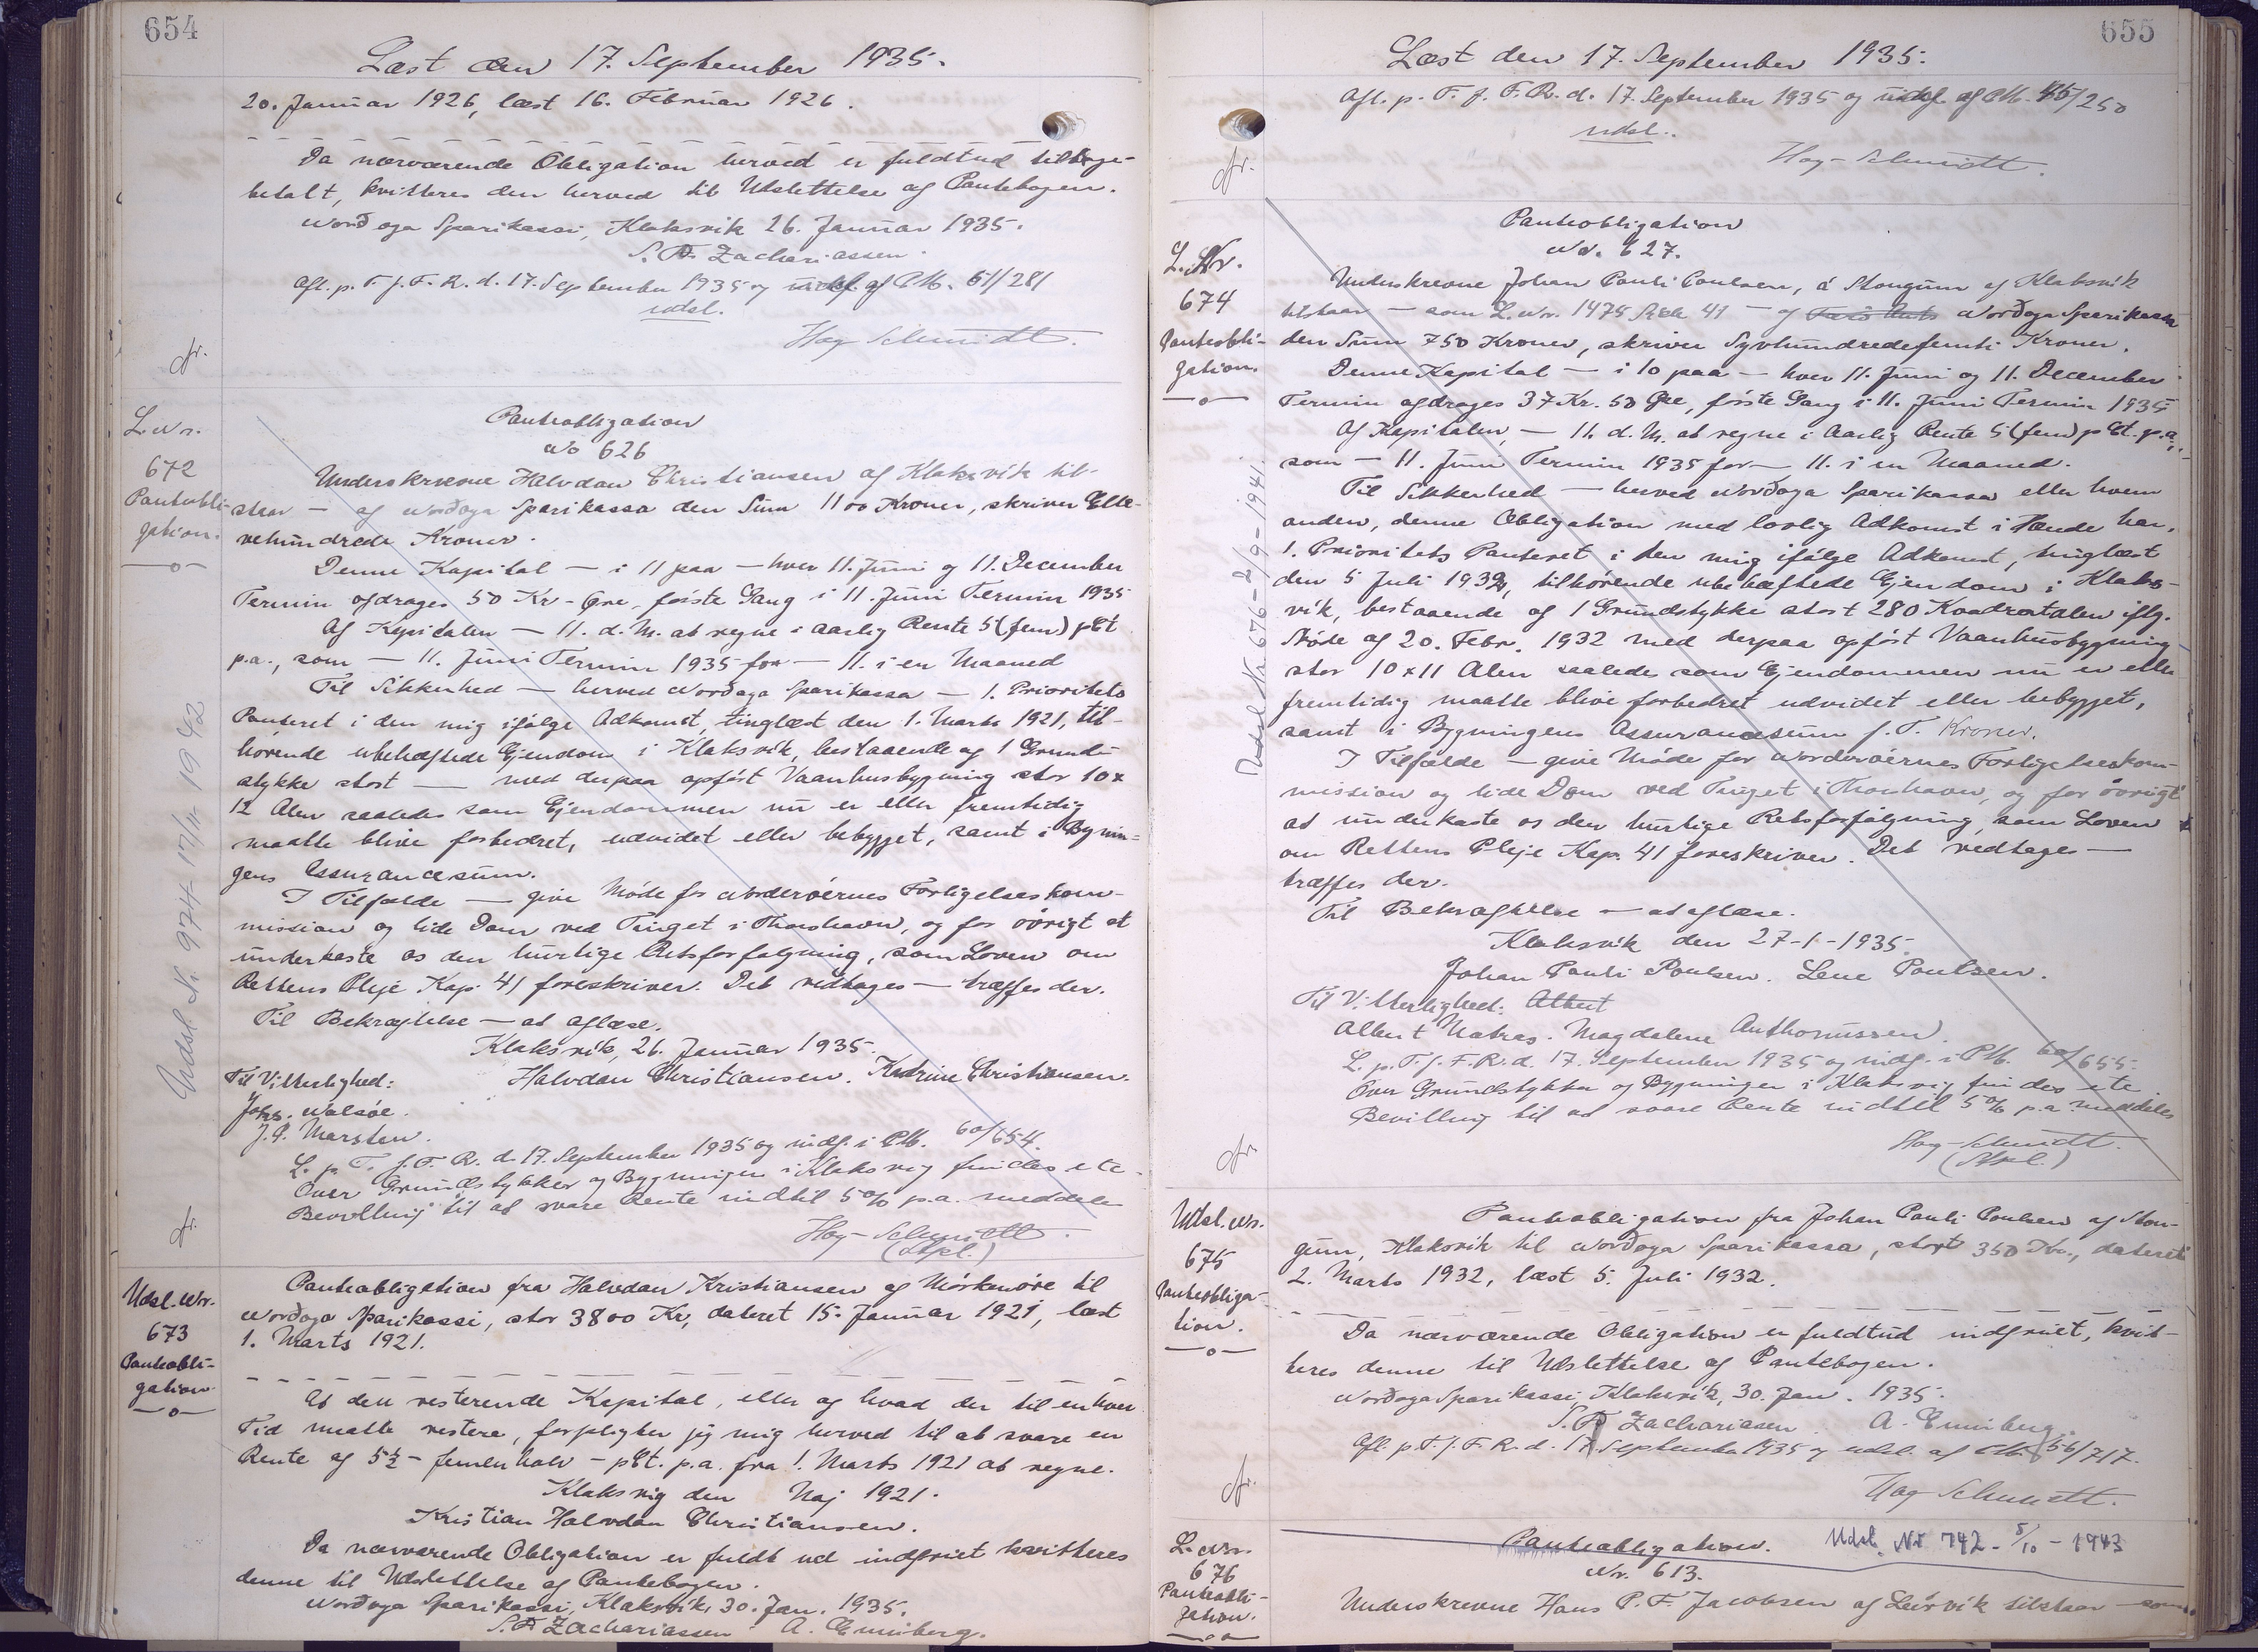 654
Læst den 17. September 1935.
20. Januar 1926, læst 16. Februar 1926.
Da nærværende Obligation herved er fuldtud tilbage-
betalt, kvitteres den herved til Udslettelse af Pantebogen.
Norðoya Sparikassi, Klaksvik 26. Januar 1935.
S. P. Zachariassen.
Afl. p. T. f. F. R. d. 17. September 1935 og indf. af P.M. 51/281
udsl.
Høg-Schmidt.
fr.
L. Nr.
672
Panteobli-
gation.
Panteobligation
No 626
Underskrevne Halvdan Christiansen af Klaksvik til-
staar — af Norðoya Sparikassa den Sum 1100 Kroner, skriver Elle-
vehundrede Kroner.
Denne Kapital — i 11 paa — hver 11. Juni og 11. December
Termin afdrages 50 Kr - Øre, første Gang i 11. Juni Termin 1935
Af Kapitalen — 11. d. M. at regne i aarlig Rente 5 (fem) pCt
p.a., som — 11. Juni Termin 1935 for — 11. i en Maaned
Til Sikkerhed — herved Norðoya Sparikassa — 1. Prioritets
Panteret i den mig ifølge Adkomst, tinglæst den 1. Marts 1921, til-
hørende ubehæftede Ejendom i Klaksvik, bestaaende af 1 Grund-
stykke stort — med derpaa opført Vaanhusbygning stor 10 x
12 Alen saaledes som Ejendommen nu er eller fremtidig
maatte blive forbedret, udvidet eller bebygget, samt i Bygnin-
gens Assurancesum.
I Tilfælde — give Møde for Norderøernes Forligelseskom-
mission og lide Dom ved Tinget i Thorshavn, og for øvrigt at
underkaste os den hurtige Retsforfølgning, som Loven om
Rettens Pleje Kap. 41 foreskriver. Det vedtages — træffes der.
Til Bekræftelse — at aflæse.
Klaksvik, 26. Januar 1935.
Til Vitterlighed: Halvdan Christiansen. Katrine Christiansen.
Johs. Walsøe.
J. P. Marsten.
L. p. T. f. F. R. d. 17. September 1935 og indf. i P.M. 60/654.
Over Grundstykker og Bygninger i Klaksvig findes etc.
Bevilling til at svare Rente indtil 5% p.a. meddeles
Høg-Schmidt.
(Stpl.)
fr.
Udsl. Nr. 974 17/11 1942
Udsl. Nr.
673
Panteobli-
gation
Panteobligation fra Halvdan Kristiansen af Mörkenöre til
Norðoya Sparikassi, stor 3800 Kr, dateret 15. Januar 1921, læst
1. Marts 1921.
At den resterende Kapital, eller og hvad der til enhver
Tid maatte restere, forpligter jeg mig herved til at svare en
Rente af 5½ - femenhalv - pCt. p.a. fra 1. Marts 1921 at regne.
Klaksvig den Maj 1921.
Kristian Halvdan Christiansen.
Da nærværende Obligation er fuldt ud indfriet kvitteres
denne til Udslettelse af Pantebogen.
Norðoya Sparikassi, Klaksvik, 30. Jan. 1935.
S. P. Zachariassen A. Enniberg.
655
Læst den 17. September 1935.
Afl. p. T. f. F. R. d. 17. September 1935 og indf. af P.M. 45/250
udsl.
Høg-Schmidt.
fr.
L. Nr.
674
Panteobli-
gation.
Panteobligation
Nr. 627.
Underskrevne Johan Pauli Poulsen, á Stongum af Klaksvik
tilstaar — som L. Nr. 1475 Stk 41 — af Norðoya Sparikassa
den Sum 750 Kroner, skriver Syvhundredefemti Kroner.
Denne Kapital — i 10 paa — hver 11. Juni og 11. December
Termin afdrages 37 Kr. 50 Øre, første Gang i 11. Juni Termin 1935
Af Kapitalen — 11. d. M. at regne i aarlig Rente 5 (fem) p Ct. p.a.,
som — 11. Juni Termin 1935 for — 11. i en Maaned.
Til Sikkerhed — herved Norðoya Sparikassa eller hvem
anden, denne Obligation med lovlig Adkomst i Hænde har,
1. Prioritets Panteret i den mig ifølge Adkomst, tinglæst
den 5 Juli 1932, tilhørende ubehæftede Ejendom i Klaks-
vik, bestaaende af 1 Grundstykke stort 280 Kvadratalen iflg.
Møde af 20. Febr. 1932 med derpaa opført Vaanhusbygning
stor 10 x 11 Alen saaledes som Ejendommen nu er eller
fremtidig maatte blive forbedret udvidet eller bebygget,
samt i Bygningens Assurancesum f. T. Kroner.
I Tilfælde — give Møde for Norderøernes Forligelseskom-
mission og lide Dom ved Tinget i Thorshavn, og for øvrigt
at underkaste os den hurtige Retsforfølgning, som Loven
om Rettens Pleje Kap. 41 foreskriver. Det vedtages —
træffes der.
Til Bekræftelse — at aflæse.
Klaksvik den 27-1-1935.
Johan Pauli Poulsen. Lene Poulsen.
Til Vitterlighed: Albert
Albert Matras. Magdalene Anthoniussen.
L. p. T. f. F. R. d. 17. September 1935 og indf. i P.M. 60/655.
Over Grundstykker og Bygninger i Klaksvig findes etc
Bevilling til at svare Rente indtil 5% p.a. meddeles
Høg-Schmidt.
(Stpl.)
fr.
Udsl. Nr. 676 - 2/9-1941.
Udsl. Nr.
675
Panteobliga-
tion.
Panteobligation fra Johan Pauli Poulsen af Ston-
gum, Klaksvik til Norðoya Sparikassa, stort 350 Kr., dateret
2. Marts 1932, læst 5. Juli 1932.
Da nærværende Obligation er fuldtud indfriet, kvit-
teres denne til Udslettelse af Pantebogen.
Norðoya Sparikassi, Klaksvik, 30. Jan. 1935.
S. P. Zachariassen A. Enniberg.
Afl. p. T. f. F. R. d. 17. September 1935 og udsl. af P.M. 56/717.
Høg-Schmidt.
fr.
L. Nr.
676
Panteobli-
gation.
Panteobligation. Udsl. Nr 742 - 5/10 - 1943
Nr. 613.
Underskrevne Hans P. F. Jacobsen af Leirvik tilstaar — som